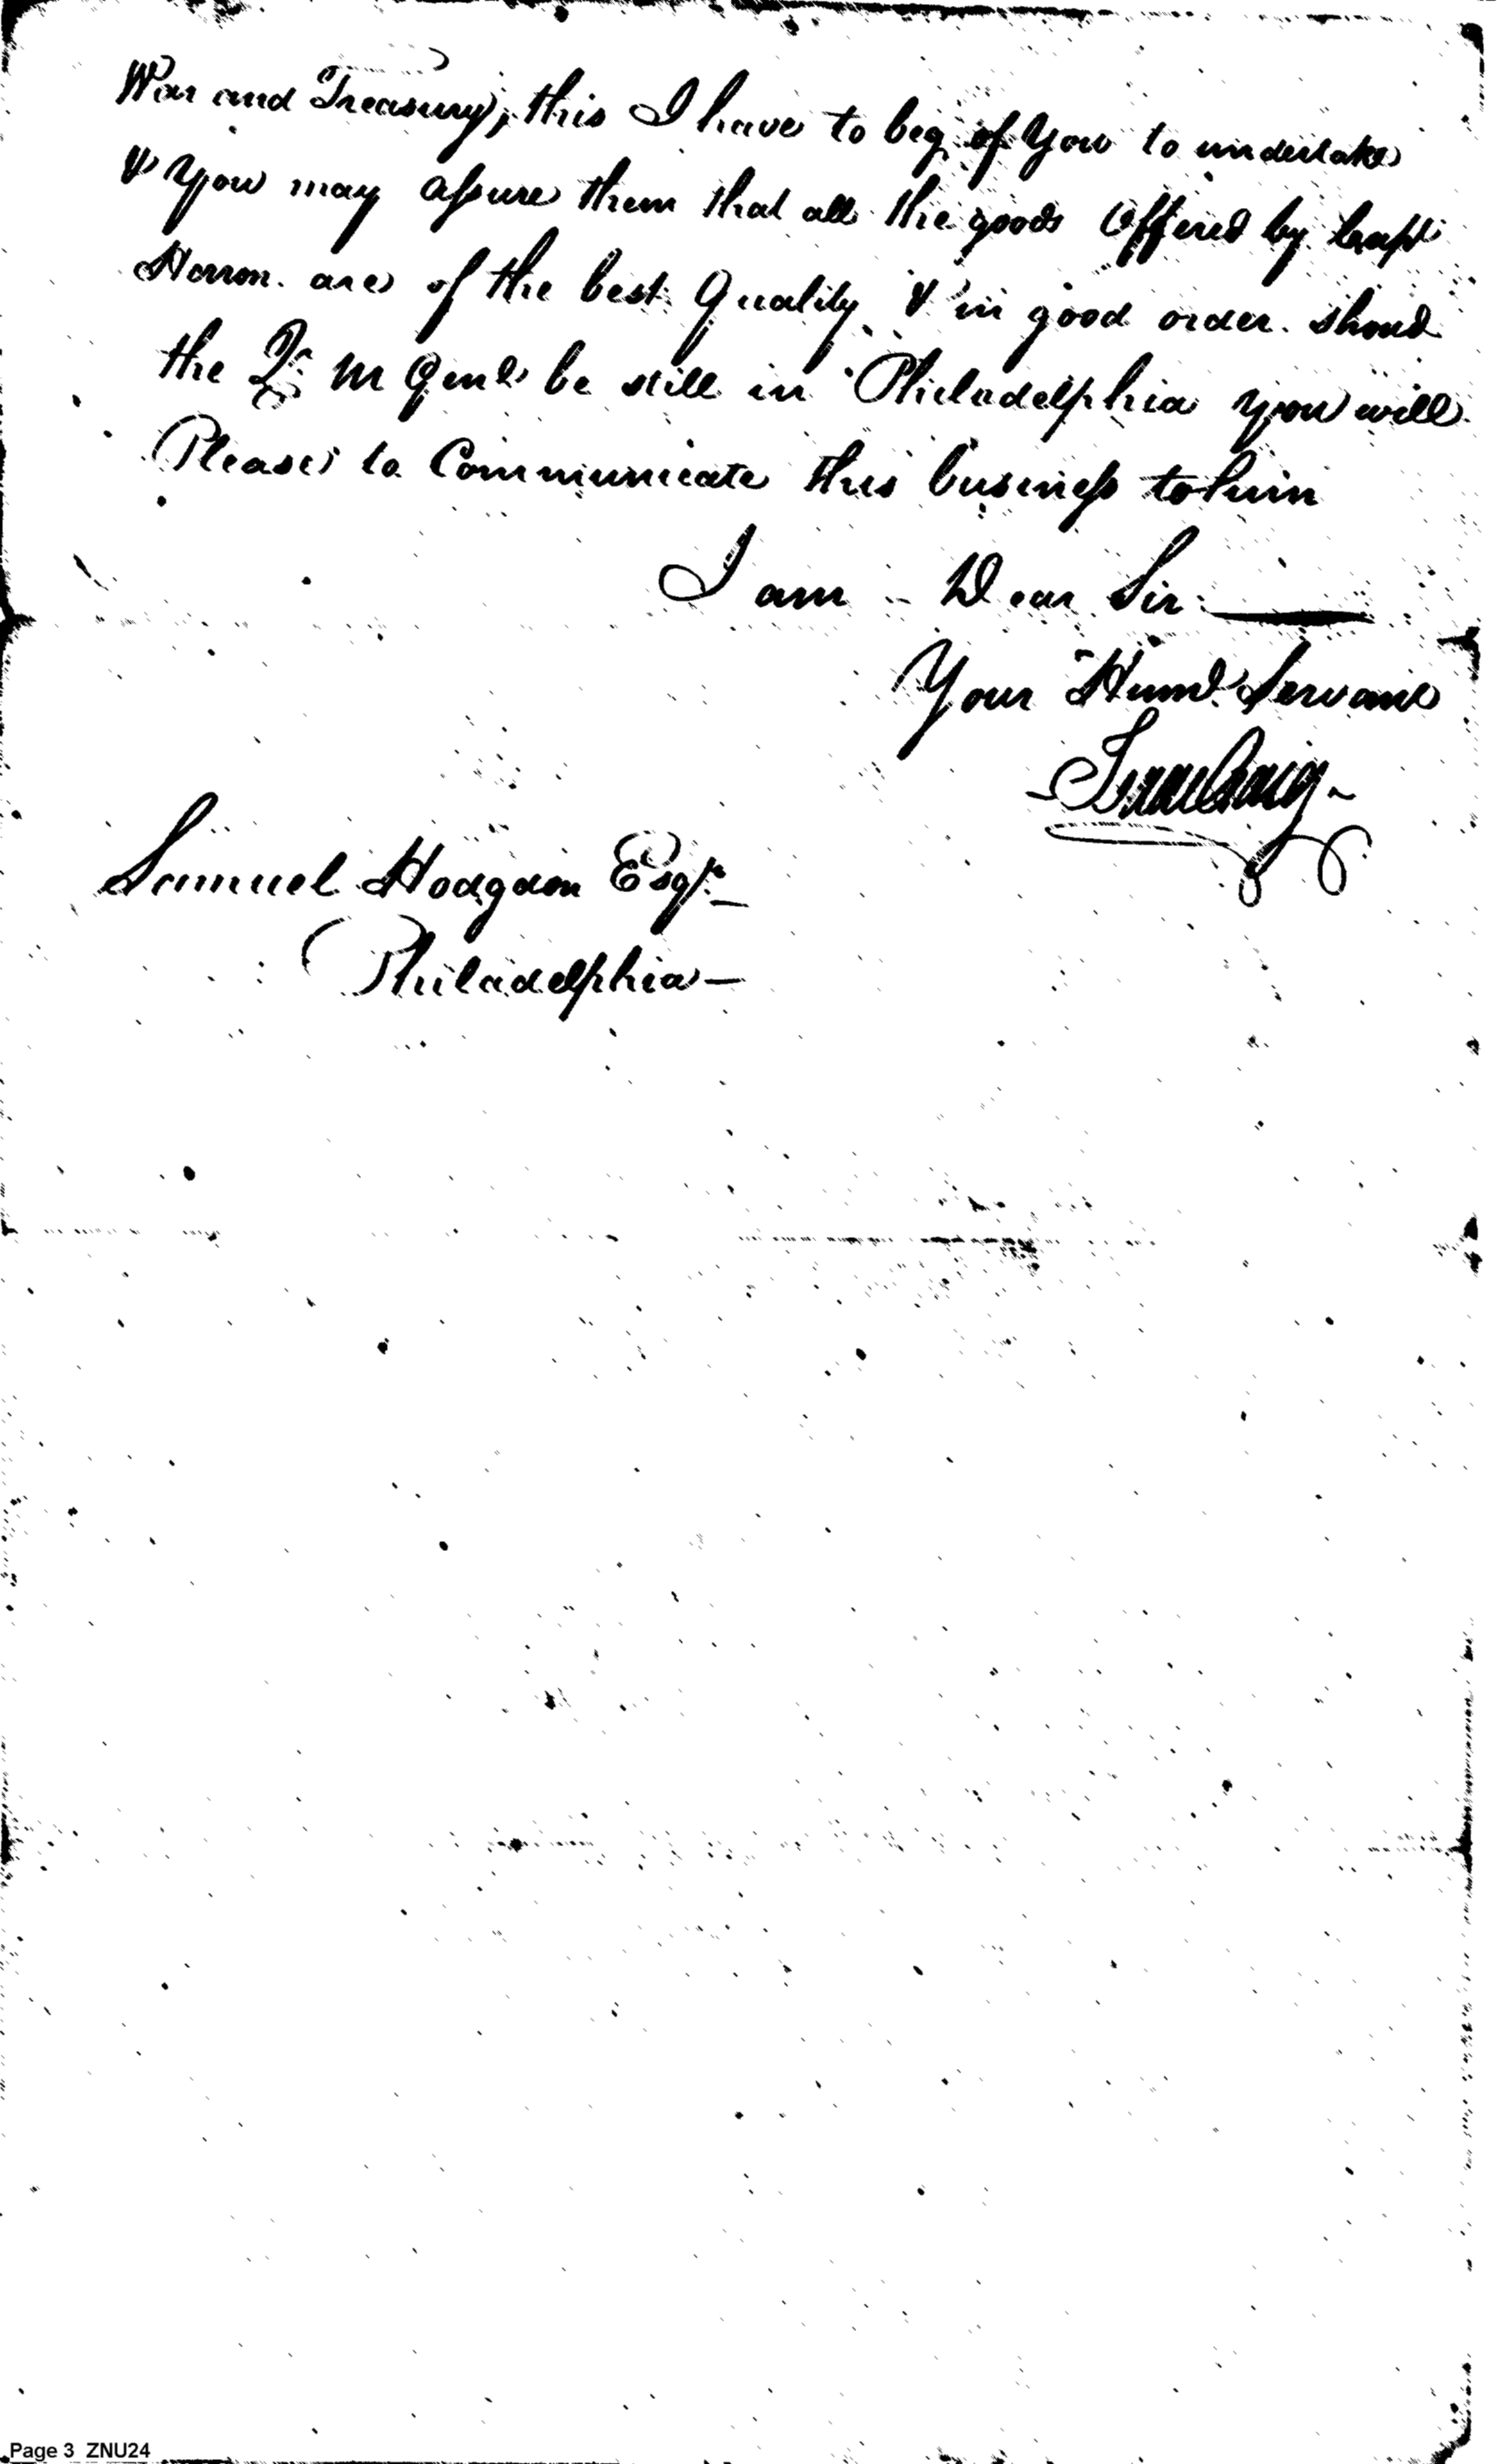 War and Treasury; this I have to beg of You to undertake
& You may assure them that all the goods Offered by Capt
Herron are of the best Quality & in good order. Shoud
the Qr M Genl be still in Philadelphia you will
Please to Communicate this business to him
I am - Dear Sir
Your Huml Servant
Isaac Craig
Samuel Hodgdon Esqr
Philadelphia
Page 3 ZNU24